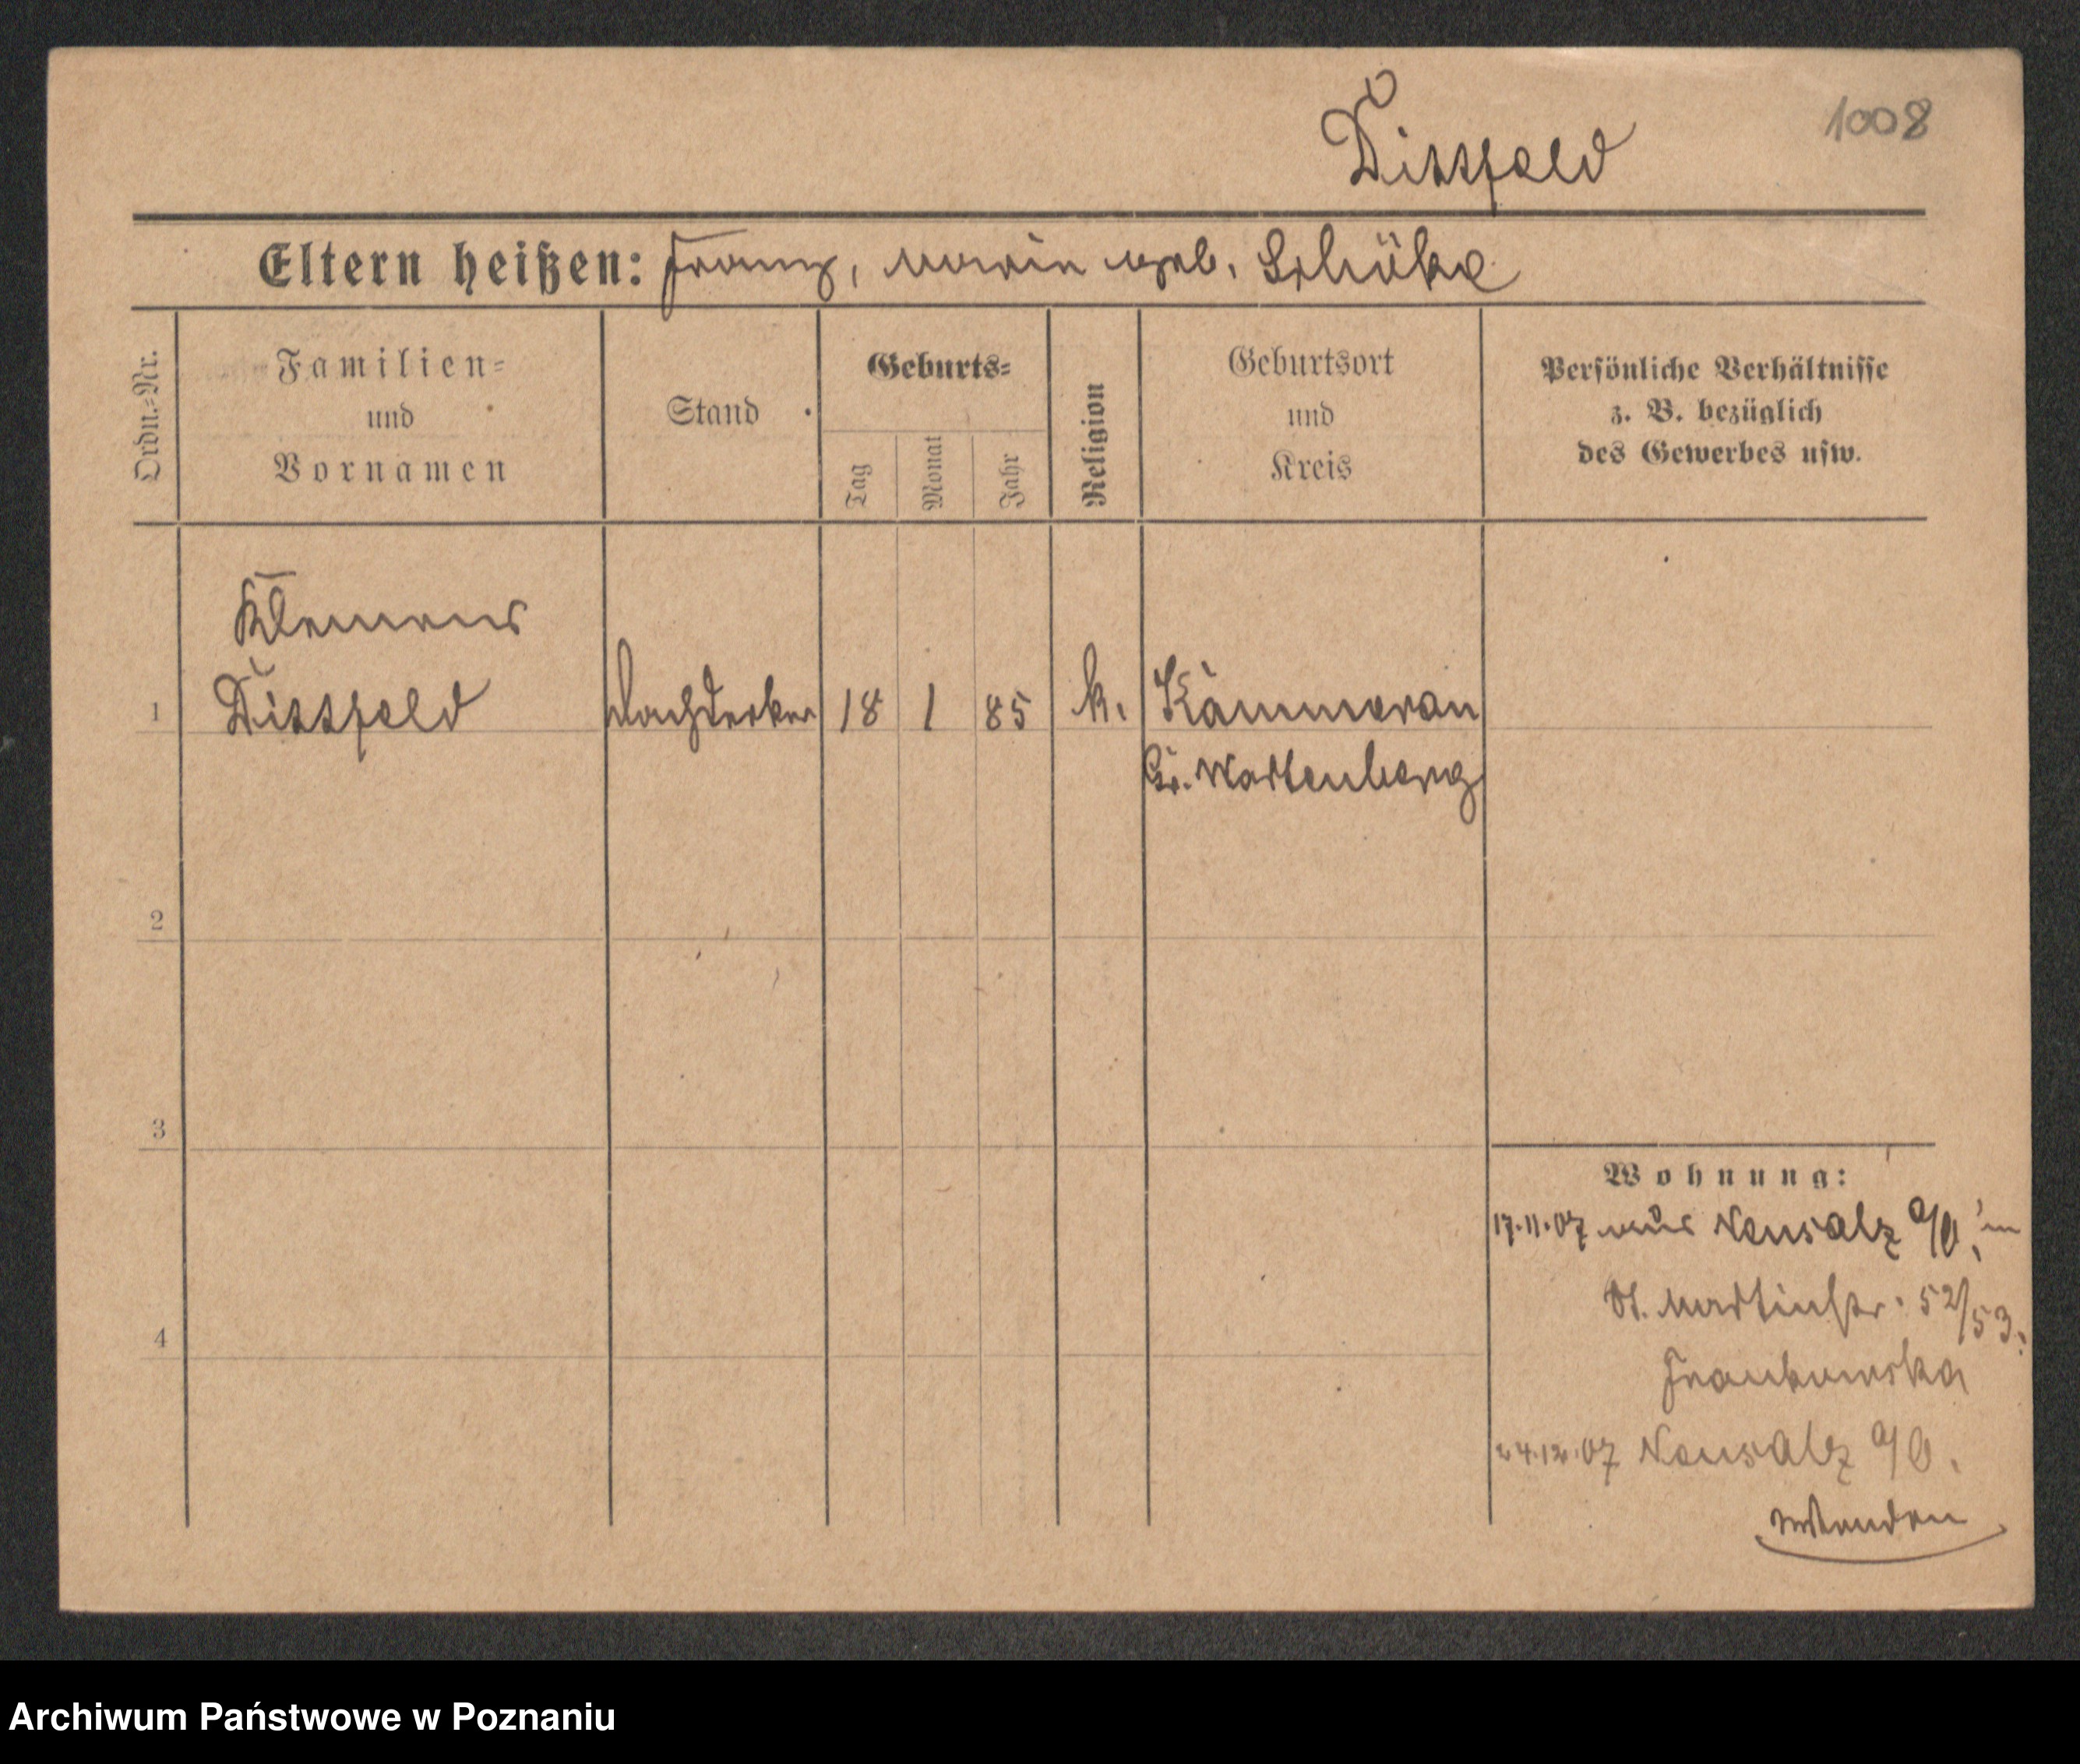 1008
Dittfeld
Eltern heißen: Franz, Marie geb. Schöke
Ordn.-Nr.
Familien-
und
Vornamen
Stand
Geburts-
Tag
Monat
Jahr
Religion
Geburtsort
und
Kreis
Persönliche Verhältnisse
z. B. bezüglich
des Gewerbes usw.
Klemens
1 Dittfeld Dachdecker 18 1 85 k. Kammerau
Gr. Wartenberg
2
3
4
Wohnung:
17.11.07 aus Neusalz a/O.
St. Martinstr. 52/53.
Frankowska
24.12.07 Neusalz a/O.
Archiwum Państwowe w Poznaniu